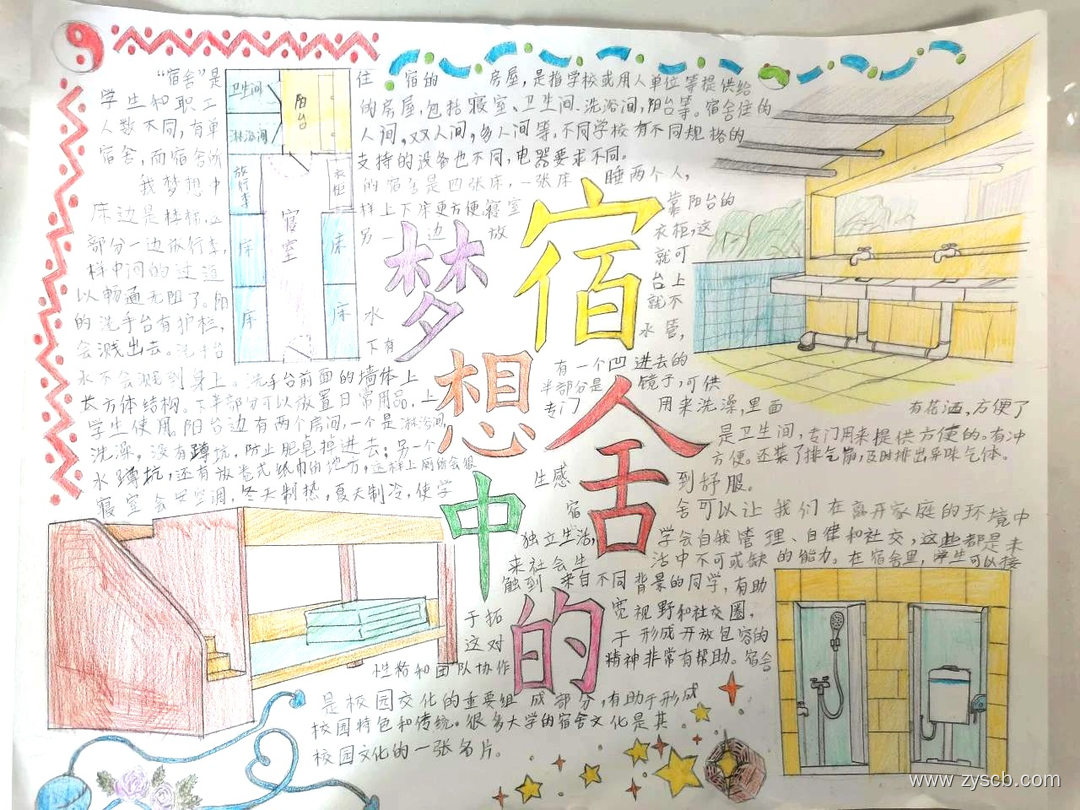 “宿舍”是 住 宿的 房屋，是指学校或用人单位等提供给
学生和职工 的房屋，包括寝室、卫生间、洗浴间，阳台等。宿舍住的
人数不同，有单 人间，双人间，多人间等，不同学校有不同规格的
宿舍，而宿舍所 支持的设备也不同，电器要求不同。
我梦想中 的宿舍是四张床，一张床 睡两个人，
床边是梯柜，这 样上下床更方便。寝室 靠阳台的
部分一边放行李， 另一边放 衣柜，这
样中间的过道 就可
以畅通无阻了。阳 台上
的洗手台有护栏， 水 就不
会溅出去。洗手台 下有 水管，
水不会溅到身上。洗手台前面的墙体上 有一个凹进去的
长方体结构。下半部分可以放置日常用品，上 半部分是 镜子，可供
学生使用。阳台边有两个房间，一个是淋浴间， 专门 用来洗澡，里面 有花洒，方便了
洗澡，没有蹲坑，防止肥皂掉进去；另一个 是卫生间，专门用来提供方便的。有冲
水蹲坑，还有放卷式纸巾的地方，这样上厕所会很 方便。还装了排气扇，及时排出异味气体。
寝室会 空调，冬天制热，夏天制冷，使学 生感 到舒服。
宿 舍可以让我们在离开家庭的环境中
独立生活， 学会自我管理、自律和社交，这些都是未
来社会生 活中不可或缺的能力。在宿舍里，学生可以接
触到 来自不同背景的同学，有助
于拓 宽视野和社交圈，
这对 于形成开放包容的
性格和团队协作 精神非常有帮助。宿舍
是校园文化的重要组成部分，有助于形成
校园特色和传统。很多大学的宿舍文化是其
校园文化的一张名片。
卫生间
阳台
淋浴间
放行李
衣柜
寝室
床
床
床
床
梦
想
中
的
宿
舍
www.zyscb.com